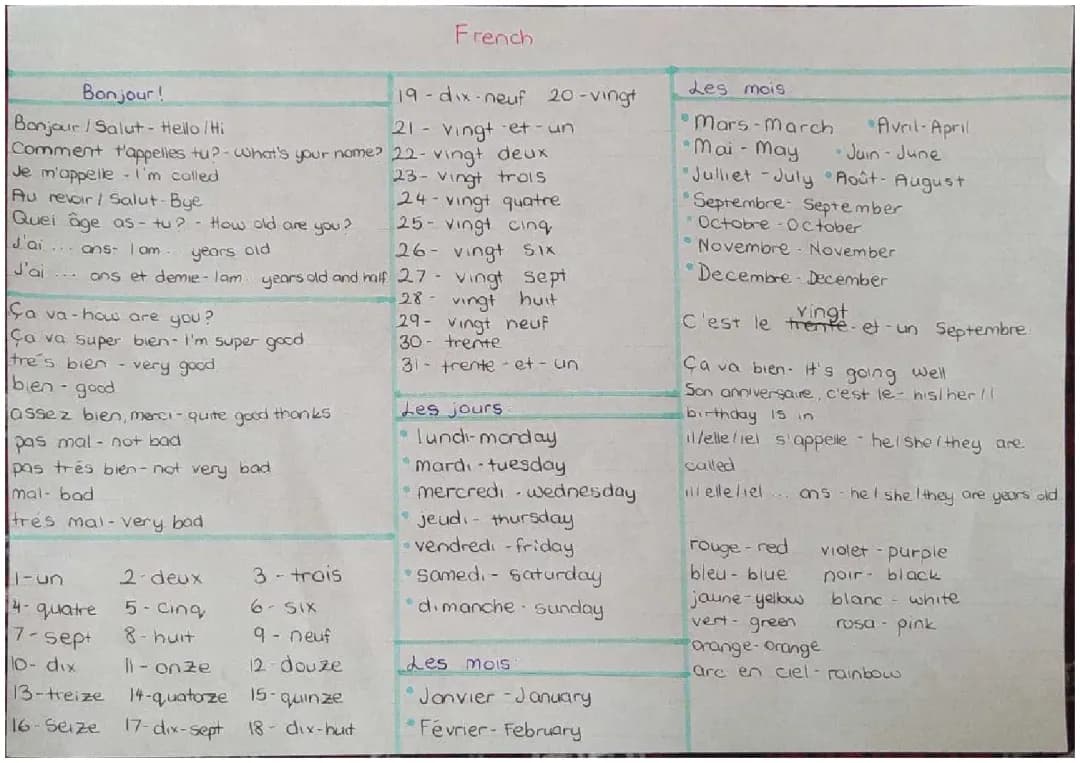 French
Bonjour!
Bonjour / Salut - Hello / Hi
Comment t'appelles tu? - What's your name?
Je m'appelle - I'm called
Au revoir / Salut - Bye
Quei âge as - tu? - How old are you?
J'ai ... ans - I am . years old
J'ai ... ans et demie - I am . years old and half
Ça va - how are you?
Ça va super bien - I'm super good
trés bien - very good
bien - good
assez bien, merci - quite good thanks
pas mal - not bad
pas trés bien - not very bad
mal - bad
trés mal - very bad
1 - un 2 - deux 3 - trois
4 - quatre 5 - cinq 6 - six
7 - sept 8 - huit 9 - neuf
10 - dix 11 - onze 12 - douze
13 - treize 14 - quatorze 15 - quinze
16 - Seize 17 - dix-sept 18 - dix-huit
19 - dix-neuf 20 - vingt
21 - vingt-et-un
22 - vingt deux
23 - vingt trois
24 - vingt quatre
25 - vingt cinq
26 - vingt six
27 - vingt sept
28 - vingt huit
29 - vingt neuf
30 - trente
31 - trente-et-un
Les jours
lundi - monday
mardi - tuesday
mercredi - wednesday
jeudi - thursday
vendredi - friday
samedi - saturday
dimanche - sunday
Les mois
Janvier - January
Février - February
Les mois
Mars - March Avril - April
Mai - May Juin - June
Julliet - July Août - August
Septembre - September
Octobre - October
Novembre - November
Decembre - December
vingt
C'est le trente-et-un Septembre
Ça va bien - it's going well
Son anniversaire, c'est le - his/her
birthday is in
il/elle/iel s'appelle - he/she/they are
called
il/elle/iel ... ans - he/she/they are years old
rouge - red violet - purple
bleu - blue noir - black
jaune - yellow blanc - white
vert - green rosa - pink
orange - orange
arc en ciel - rainbow